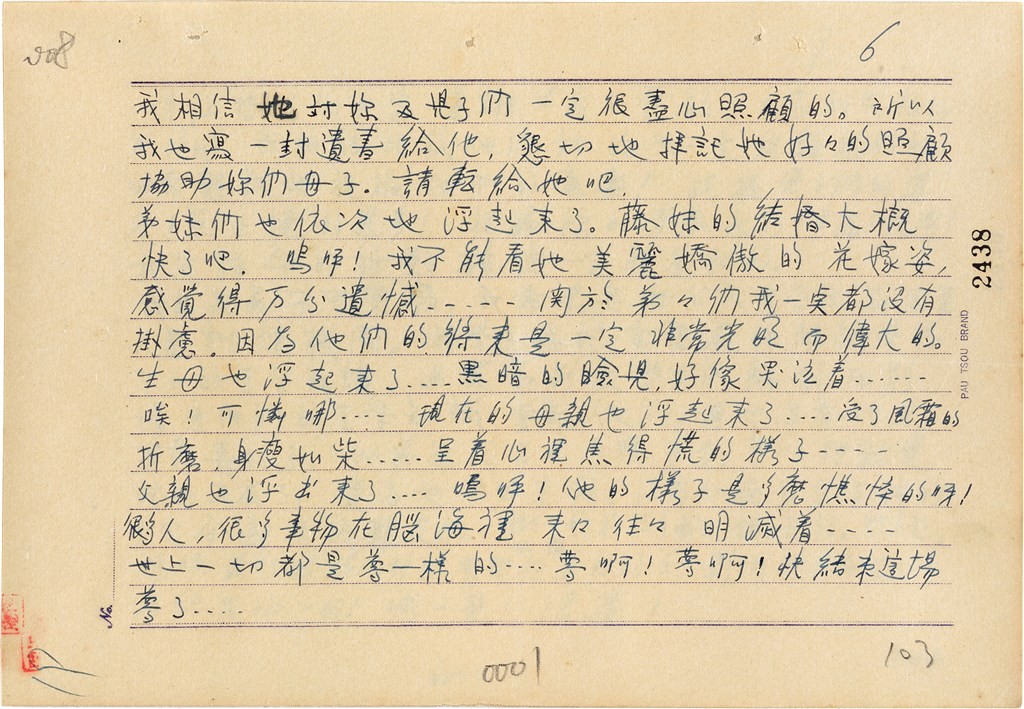 008
6
我相信她対妳及児子們一定很盡心照顧的。所以
我也寫一封遺書給他，懇切地拝託她好々的照顧
協助妳們母子。請転給她吧，
弟妹們也依次地浮起来了。藤妹的結婚大概
快了吧．嗚呼！我不能看她美麗嬌傲的花嫁姿，
感覚得万分遺憾.---- 関於弟々們我一点都没有
掛慮。因為他們的将来是一定非常光明而偉大的。
生母也浮起来了....黒暗的臉児，好像哭泣着......
唉！可憐哪.... 現在的母親也浮起来了....受了風霜的
折磨，身瘦如柴.....呈着心裡焦得慌的樣子----
父親也浮出来了.... 嗚呼！他的樣子是多麼憔悴的呀！
很多人，很多事物在腦海裡来々往々明滅着----
世上一切都是夢一樣的....夢啊！夢啊！快結束這場
夢了.....
No.
2438
PAU TSOU BRAND
0001
103